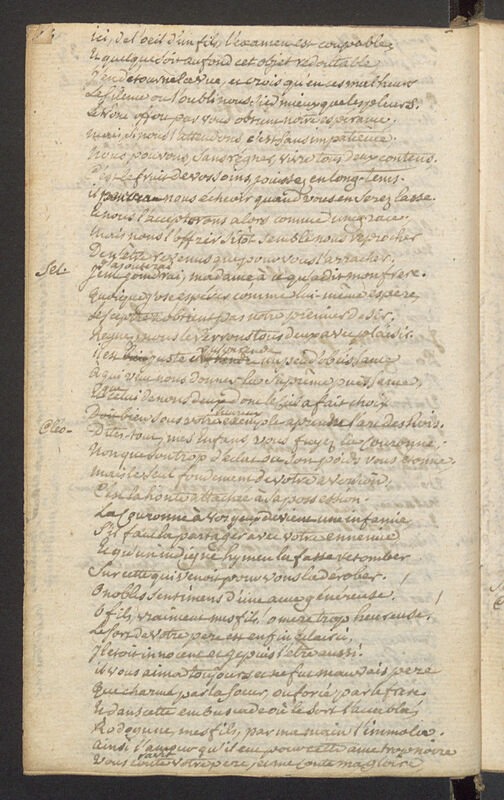 ici, de l'oeil d'un fils, l'examen est coupable,
et quelque soit au fond cet objet redoutable
J'en detourne la vue, et crois qu'en ces malheurs
Le silence ou l'oubli nous sied mieux que les pleurs.
Le trone offert par vous obtient notre esperance.
mais, si nous l'attendons c'est sans impatience.
Nous pouvons, sans regner, vivre tous deux contens.
C'est le fruit de vos soins, jouissez en long-tems.
il nous echoir quand vous en serez lasse.
et nous l'accepterons alors comme une grace.
mais nous l'offrir sitôt semble nous reprocher
De n'être revenus que pour vous l'arracher.
Sel. J'ajouterai, madame, à ce qu'a dit mon frere.
Quoique j'ose esperer comme lui-même espere,
Le sceptre n'obtient pas notre premier desir.
Regnez, nous le verrons tous deux avec plaisir.
il est juste à la seule obeissance
à qui veut nous donner la suprême puissance,
et celui de nous deux dont le ciel a fait choix
Doit bien sous votre exemple aprendre l'art des Rois.
Cleo- Dites tout, mes enfans, vous fuyez la Couronne;
Non que son trop d'eclat ou son poids vous etonne.
mais le seul fondement de votre aversion,
C'est la honte attachée à sa possession.
La Couronne à vos yeux devient une infamie
S'il faut la partager avec votre ennemie
et qu'un indigne hymen la fasse retomber
Sur cette qui venoit pour vous la dérober.
O nobles sentimens d'une ame genereuse!
O fils, vraiment mes fils! ô mere trop heureuse,
Le sort de votre pere est enfin éclairci,
il etoit innocent et je puis l'être aussi.
il vous aima toujours, et ne fut mauvais pere
Que charmé par la soeur, ou forcé par le frere
et dans cette embuscade où le sort l'accabla,
Rodogune, mes fils, par ma main l'immola.
ainsi l'amour qu'il eut pour cette ame trop noire
Vous coute votre pere, et me coute ma gloire